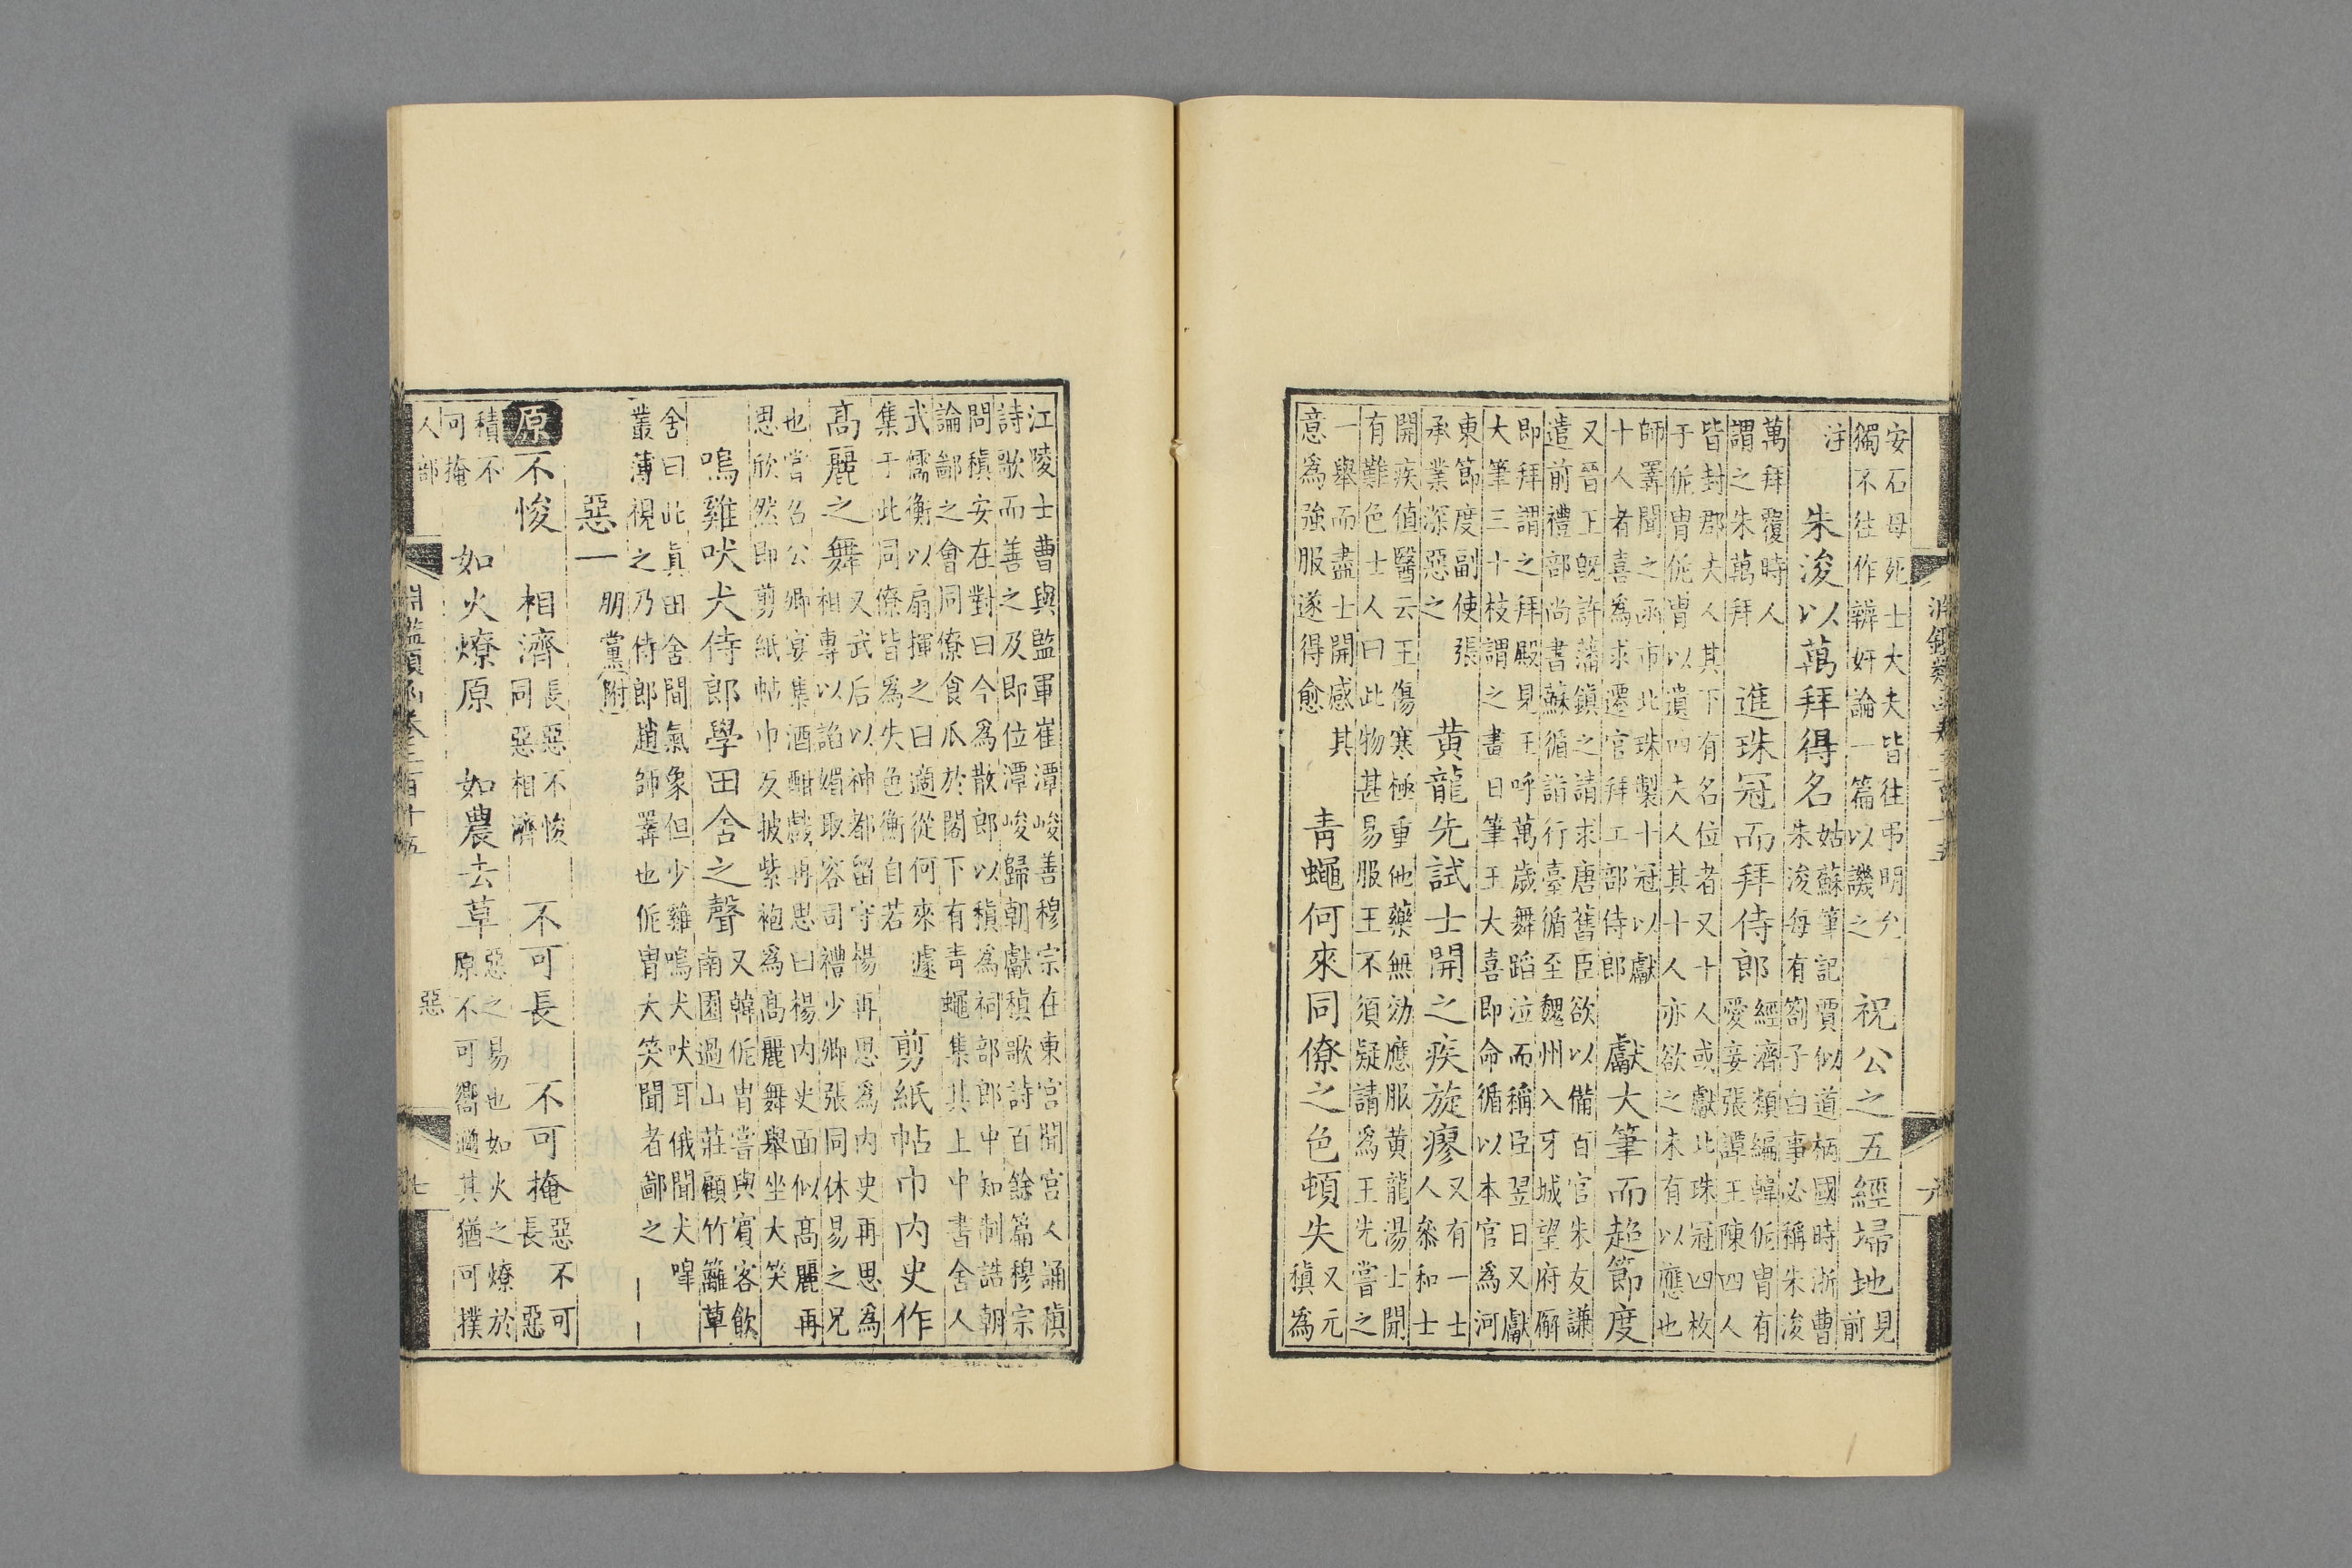 淵鑑類函卷三百十五 六
安石母死士大夫皆往弔明允
獨不往作辨奸論一篇以譏之
祝公之五經埽地
見
前
注
朱浚以萬拜得名
姑蘇筆記賈似道柄國時浙曹
朱浚每有劄子白事必稱朱浚
萬拜覆時人
謂之朱萬拜
進珠冠而拜侍郎
經濟類編韓侂冑有
愛妾張譚王陳四人
皆封郡夫人其下有名位者又十人或獻北珠冠四枚
于侂冑侂冑以遺四夫人其十人亦欲之未有以應也
師羼聞之亟市北珠製十冠以獻
十人者喜為求遷官拜工部侍郎
獻大筆而超節度
又晉王旣許藩鎮之請求唐舊臣欲以備百官朱友謙
遣前禮部尚書蘇循詣行臺循至魏州入牙城望府廨
即拜謂之拜殿見王呼萬歲舞蹈泣而稱臣翌日又獻
大筆三十枝謂之畫日筆王大喜即命循以本官為河
東節度副使張
承業深惡之
黃龍先試士開之疾旋瘳
又有一士
人叅和士
開疾値醫云王傷寒極重他藥無効應服黃龍湯士開
有難色士人曰此物甚易服王不須疑請為王先嘗之
一舉而盡士開感其
意為強服遂得愈
靑蠅何來同僚之色頓失
又元
稹為
江陵士曹與監軍崔潭峻善穆宗在東宮聞宮人誦稹
詩歌而善之及即位潭峻歸朝獻稹歌詩百餘篇穆宗
問稹安在對曰今為散郎以稹為祠部郎中知制誥朝
論鄙之會同僚食瓜於閣下有靑蠅集其上中書舍人
武儒衡以扇揮之曰適從何來遽
集于此同僚皆為失色衡自若
剪紙帖巾內史作
高麗之舞
又武后以神都留守楊再思為內史再思為
相專以諂媚取容司禮少卿張同休易之兄
也嘗召公卿宴集酒酣戲再思曰楊內史面似高麗再
思欣然即剪紙帖巾反披紫袍為高麗舞舉坐大笑
嗚雞吠犬侍郎學田舍之聲
又韓侂冑嘗與賓客飲
南園過山莊顧竹籬草
舍曰此眞田舍間氣象但少雞鳴犬吠耳俄聞犬嘷
叢薄視之乃侍郎趙師羼也侂冑大笑聞者鄙之
惡一
朋黨附
原
不悛
相濟
長惡不悛
同惡相濟
不可長
不可掩
惡不可
長惡
積不
可掩
如火燎原
如農去草
惡之易也如火之燎於
原不可嚮邇其猶可撲
淵鑑類函卷三百十五
人部 惡 七